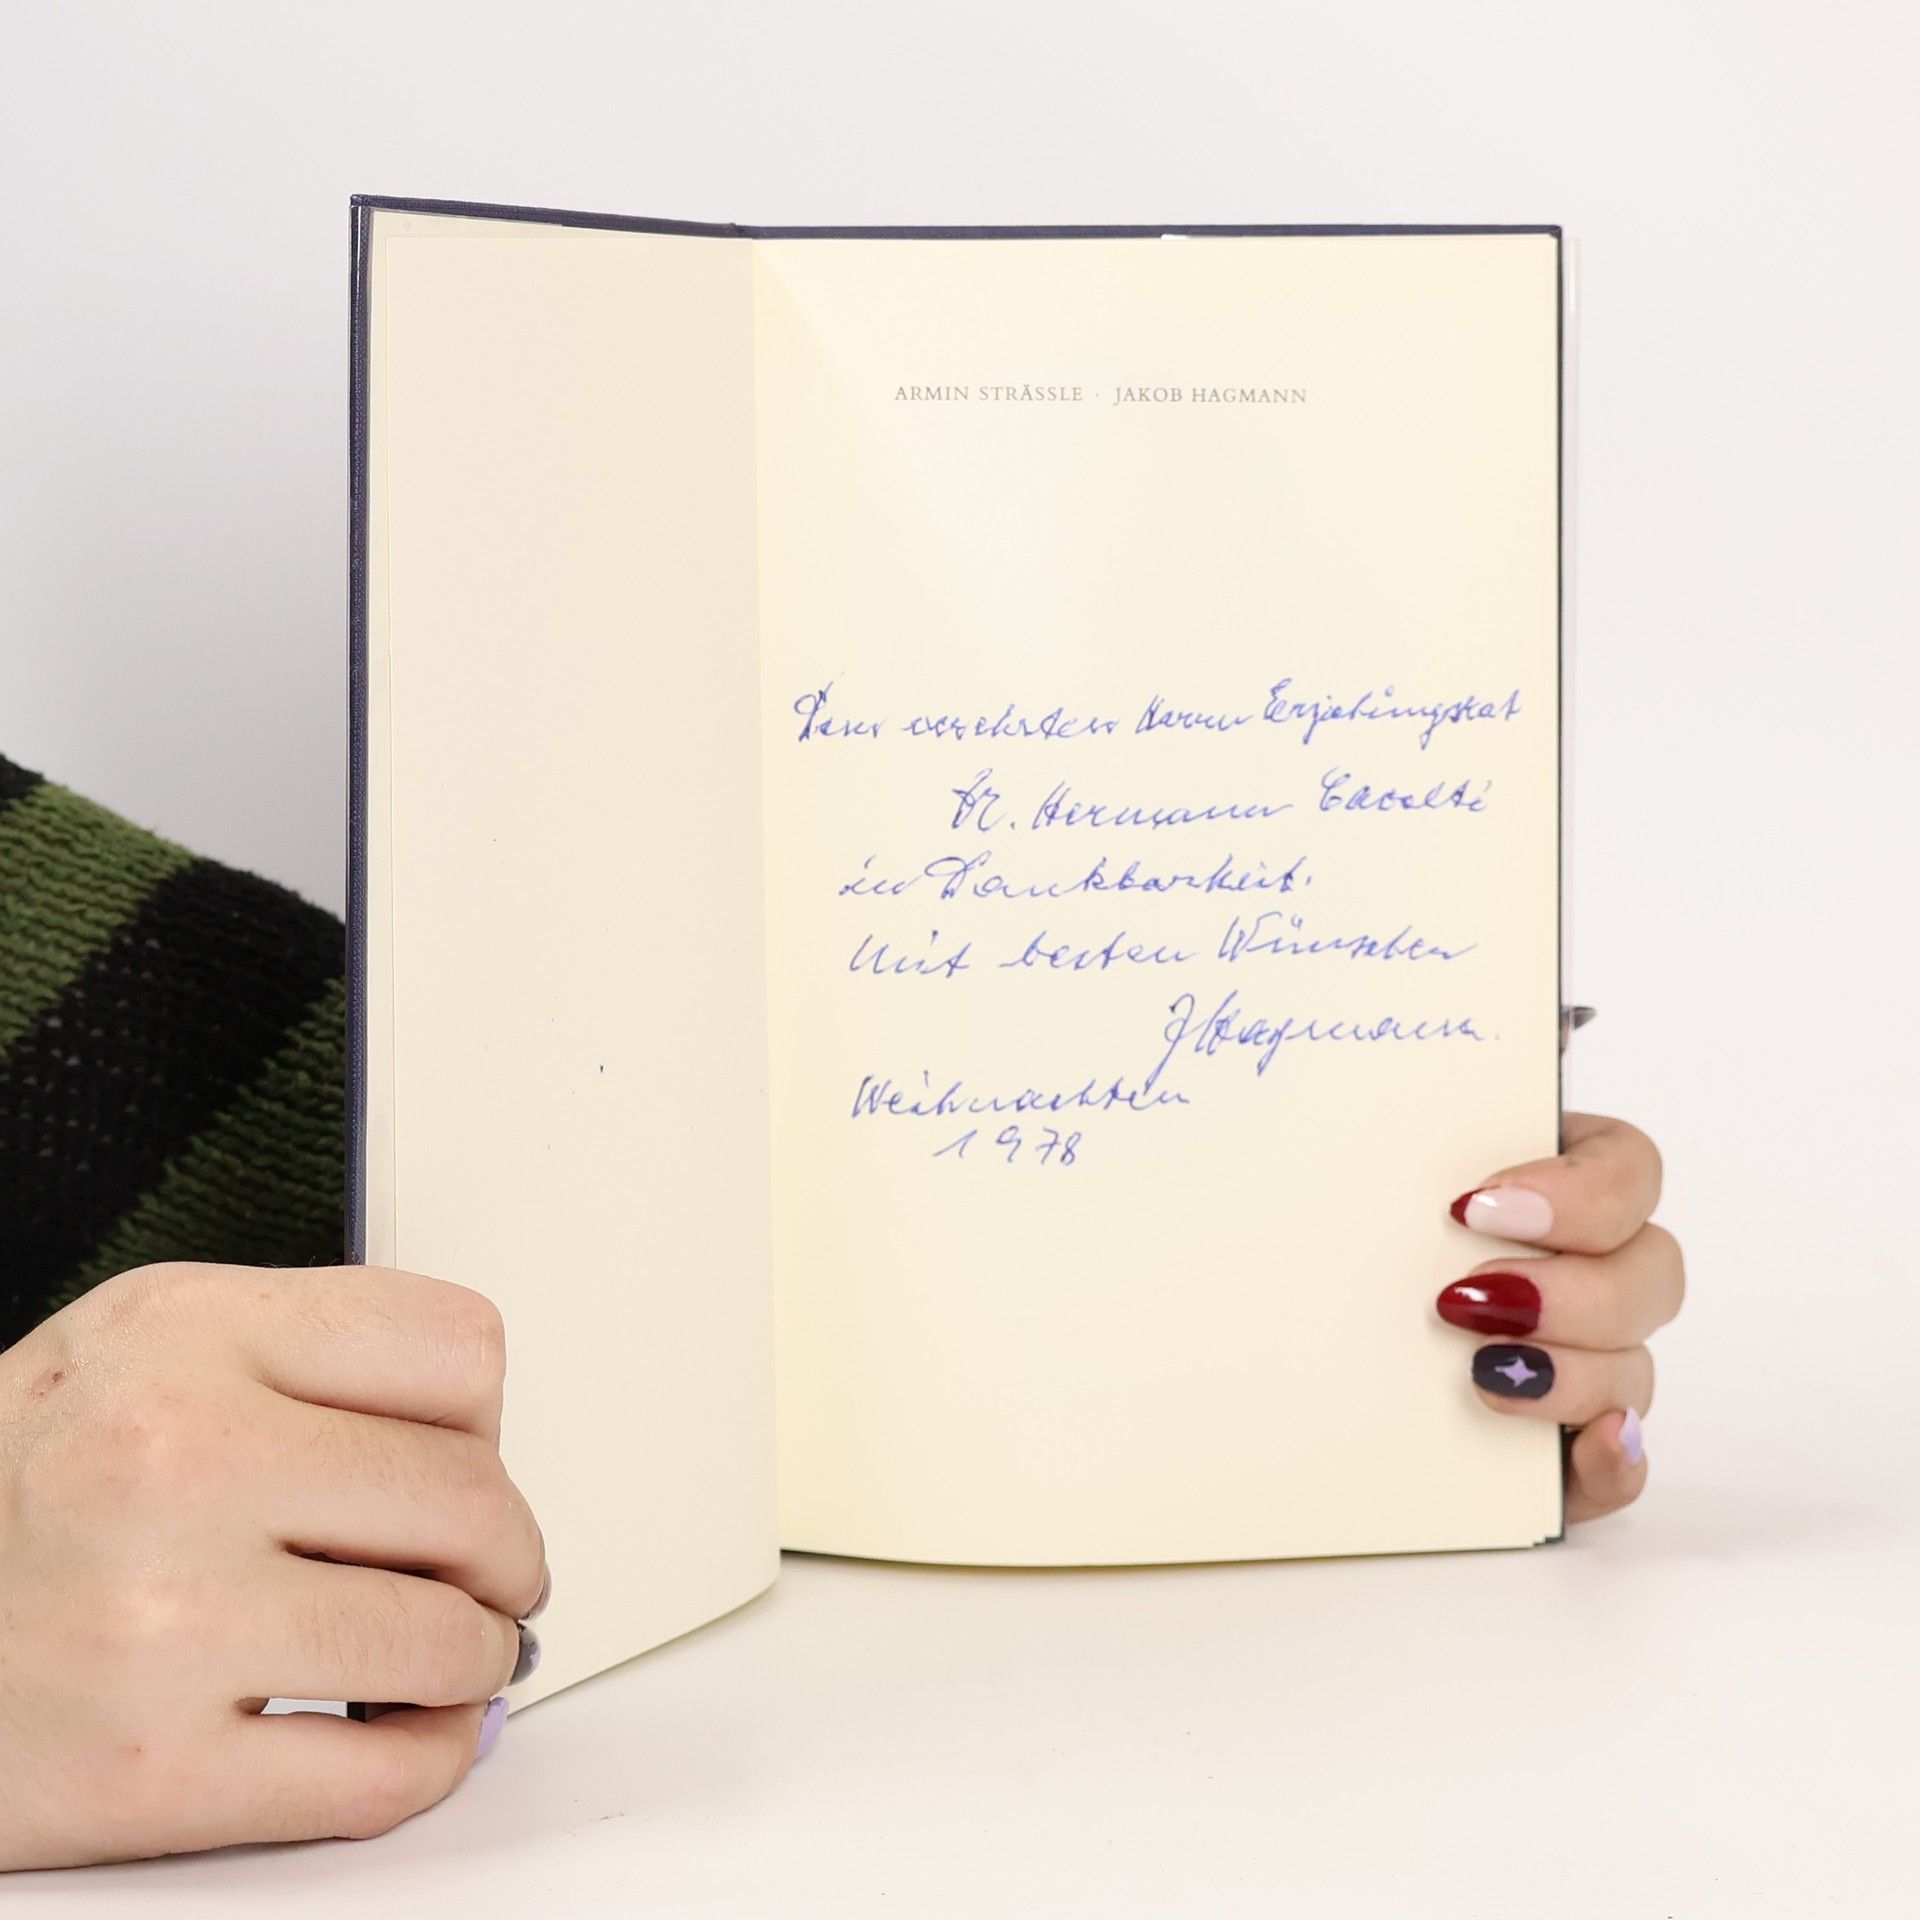 ARMIN STRÄSSLE · JAKOB HAGMANN
Dem verehrten Herrn Erziehungsrat
Dr. Hermann Cavelti
in Dankbarkeit.
Mit besten Wünschen
J Hagmann.
Weihnachten
1978